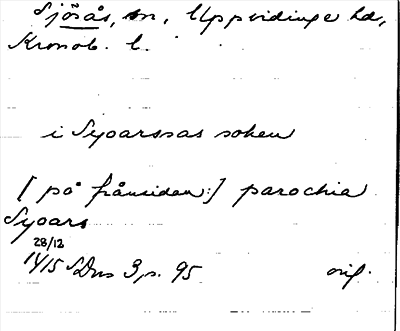 Sjösås, sn, Uppvidinge hd,
Kronob. l.
i Syoarsaas soken
[på frånsidan:] parochia
Syoars
28/12
1415 SDns 3, s. 95 orig.